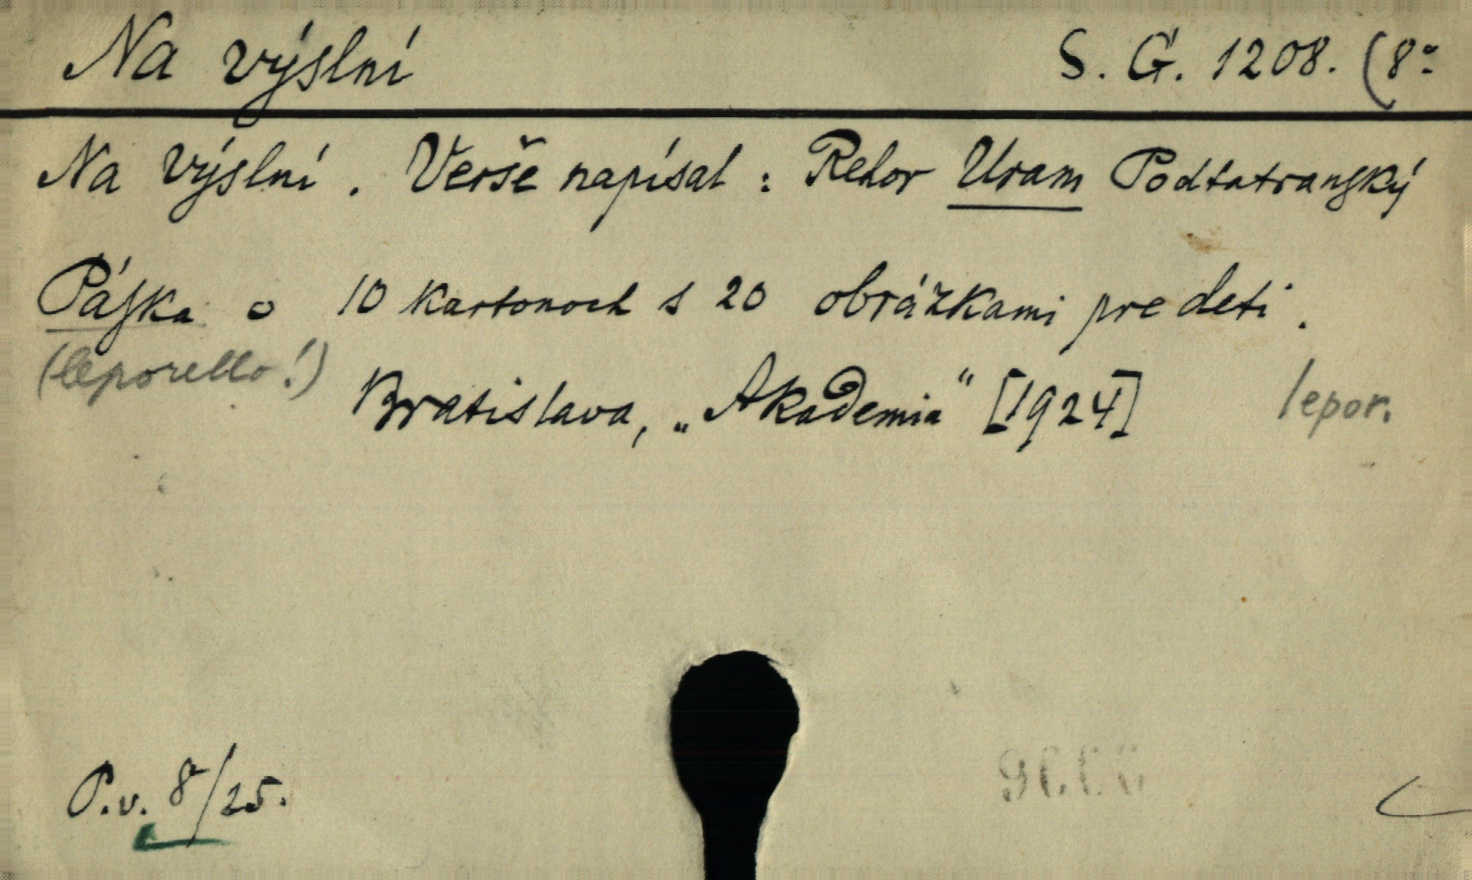 Na výslní S. G. 1208. (8°
Na výslní. Verše napísal: Rehor Uram Podtatranský
Páska o 10 kartonoch s 20 obrázkami pre deti.
(leporello!)
Bratislava, „Akademia“ [1924] lepor.
P.v. 8/25.